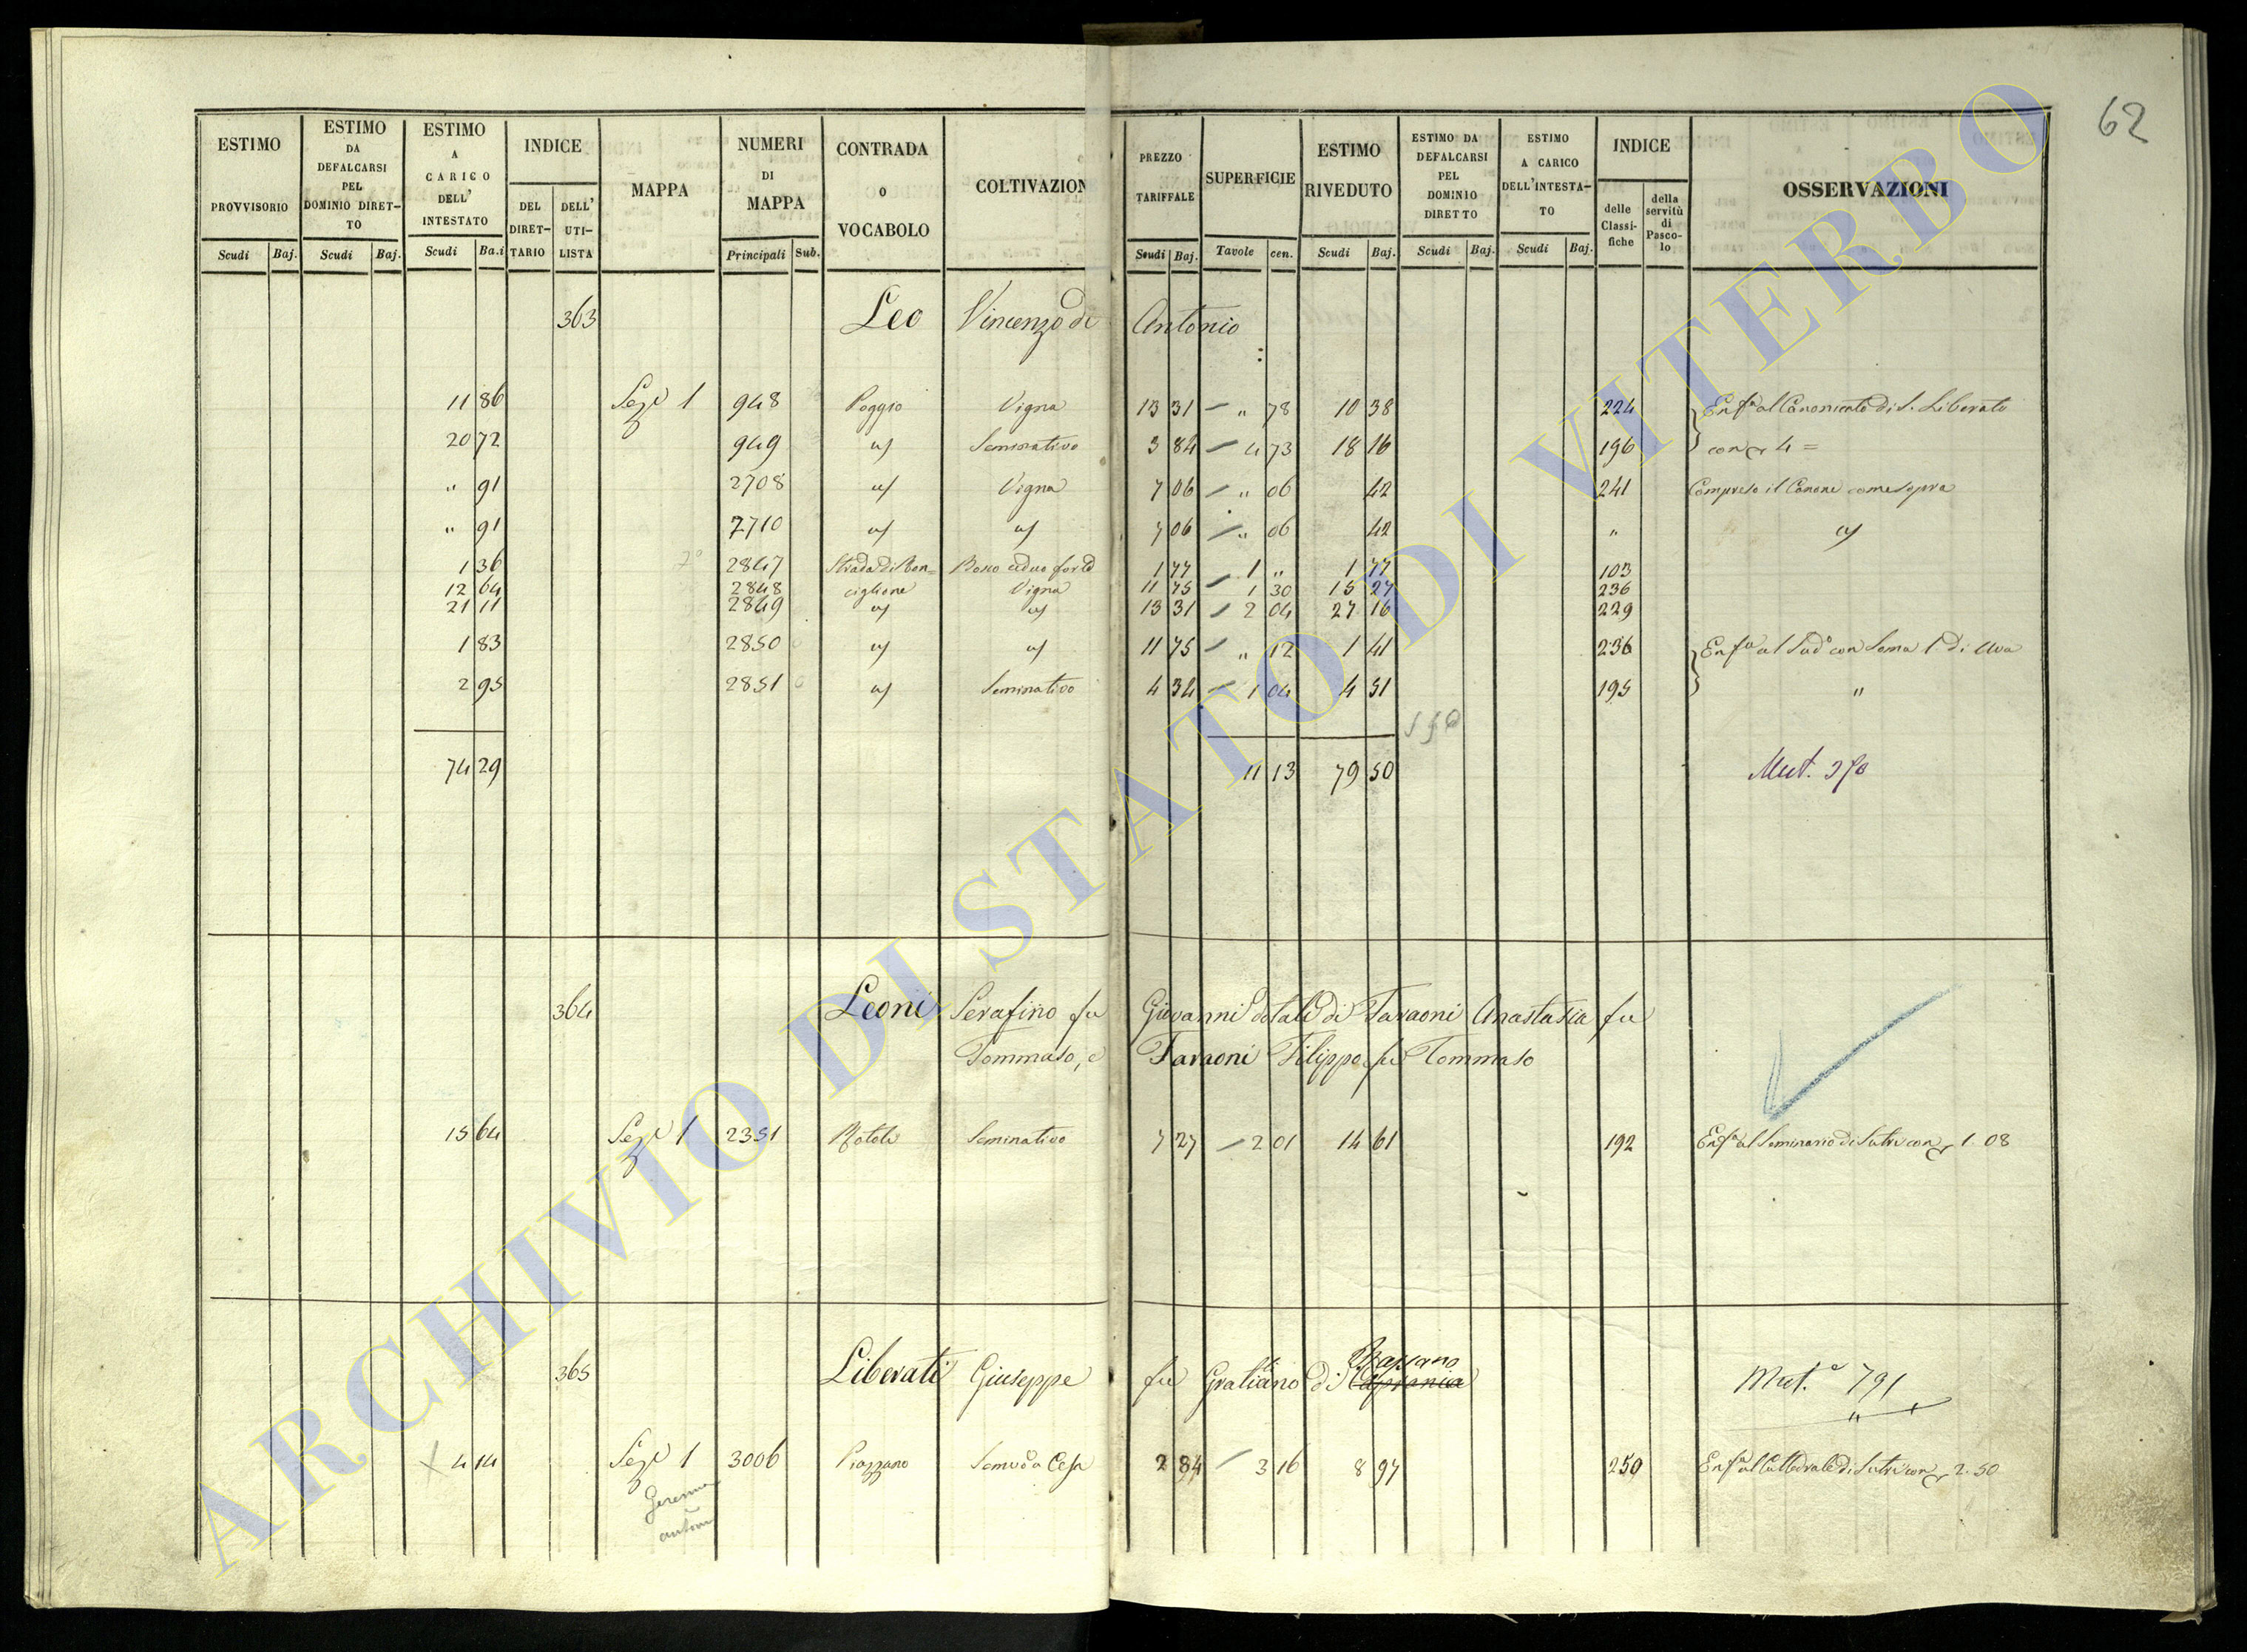 62
ESTIMO PROVVISORIO Scudi Baj.
ESTIMO DA DEFALCARSI PEL DOMINIO DIRET-TO Scudi Baj.
ESTIMO A CARICO DELL' INTESTATO Scudi Ba.i
INDICE DEL DIRET-TARIO DELL' UTI-LISTA
MAPPA
NUMERI DI MAPPA Principali Sub.
CONTRADA O VOCABOLO
COLTIVAZION
PREZZO TARIFFALE Scudi Baj.
SUPERFICIE Tavole cen.
ESTIMO RIVEDUTO Scudi Baj.
ESTIMO DA DEFALCARSI PEL DOMINIO DIRETTO Scudi Baj.
ESTIMO A CARICO DELL'INTESTA-TO Scudi Baj.
INDICE delle Classi-fiche della servitù di Pasco-lo
OSSERVAZIONI
363 Leo Vincenzo di Antonio
11 86 Sez.e 1 948 Poggio Vigna 13 31 " 78 10 38 224 Enf.a al Canonicato di S. Liberato
20 72 949 Seminativo 3 84 4 73 18 16 196 con 4 =
" 91 2708 Vigna 7 06 " 06 42 241 Compreso il Canone come sopra
" 91 2710 7 06 " 06 42 "
1 36 2847 Strada di Ron= Bosco ceduo forte 1 77 1 " 1 77 103
12 64 2848 ciglione Vigna 11 75 1 30 15 27 236
21 11 2849 13 31 2 04 27 16 229
1 83 2850 11 75 " 12 1 41 236 Enf.a al Sud.o con Soma 1 di Uva
2 95 2851 Seminativo 4 34 1 04 4 51 195 "
74 29 11 13 79 50 Mut.
364 Leoni Serafino fu Giovanni dotali di Faraoni Anastasia fu
Tommaso, e Faraoni Filippo fu Tommaso
15 64 Sez.e 1 2351 Rotoli Seminativo 7 27 2 01 14 61 192 Enf.a al Seminario di Sutri con 1.08
365 Liberati Giuseppe fu Gratiliano di Capranica Bassano Mut.e 791
4 14 Sez.e 1 3006 Piazzano 2 84 3 16 8 97 250 Enf.a al Cattedrale di Sutri con 2.50
ARCHIVIO DI STATO DI VITERBO